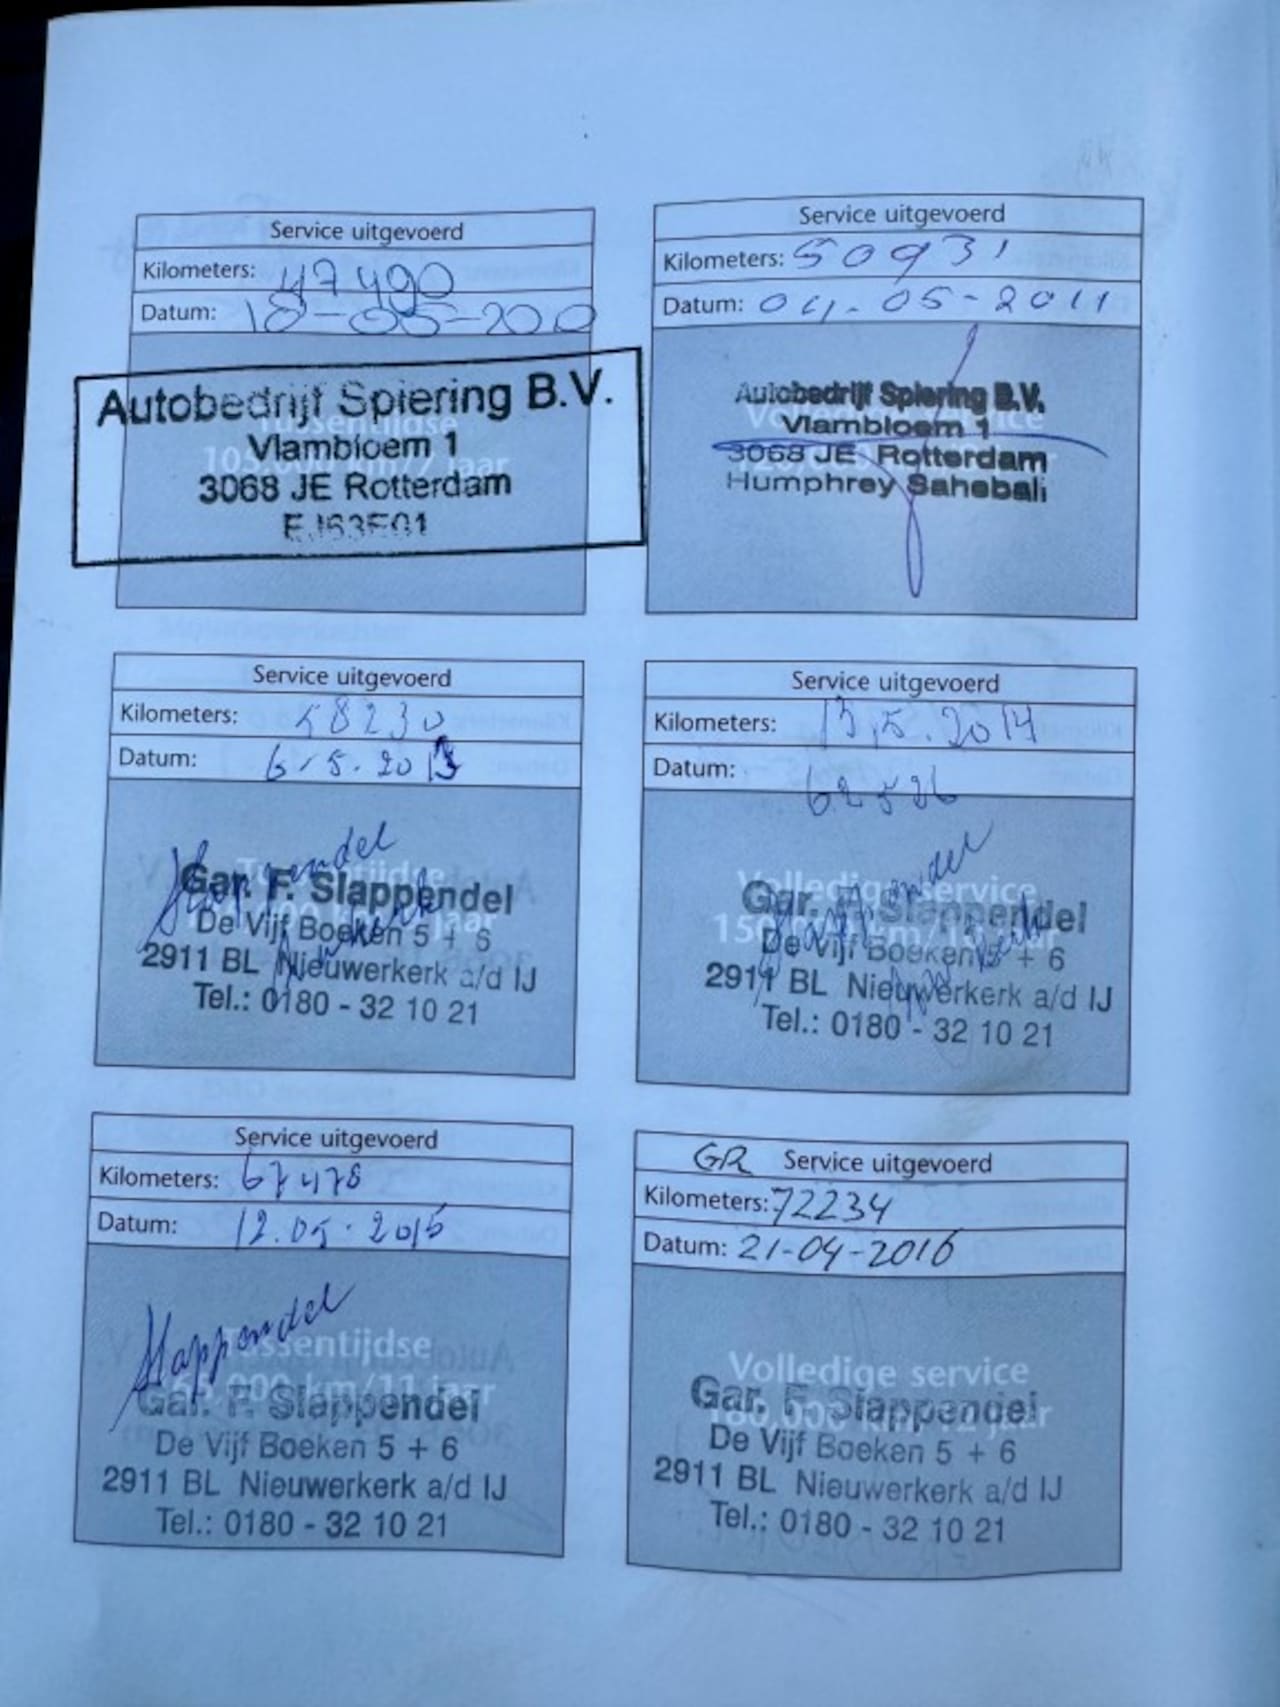 Service uitgevoerd
Kilometers: 47490
Datum: 18-05-2010
Tussentijdse
105.000 km/7 jaar
Autobedrijf Spiering B.V.
Vlambloem 1
3068 JE Rotterdam
Service uitgevoerd
Kilometers: 50931
Datum: 04-05-2011
Volledige service
Autobedrijf Spiering B.V.
Vlambloem 1
3068 JE Rotterdam
Humphrey Sahebali
Service uitgevoerd
Kilometers: 58230
Datum: 6-5-2013
Slappendel
Tussentijdse
jaar
Gar. F. Slappendel
De Vijf Boeken 5 + 6
2911 BL Nieuwerkerk a/d IJ
Tel.: 0180 - 32 10 21
Service uitgevoerd
Kilometers: 13.5.2014
Datum: 62526
Slappendel
Volledige service
150.000 km/10 jaar
Gar. F. Slappendel
De Vijf Boeken 5 + 6
2911 BL Nieuwerkerk a/d IJ
Tel.: 0180 - 32 10 21
Service uitgevoerd
Kilometers: 67478
Datum: 12.05.2015
Slappendel
Tussentijdse
165.000 km/11 jaar
Gar. F. Slappendel
De Vijf Boeken 5 + 6
2911 BL Nieuwerkerk a/d IJ
Tel.: 0180 - 32 10 21
GR Service uitgevoerd
Kilometers: 72234
Datum: 21-04-2016
Volledige service
180.000 km/12 jaar
Gar. F. Slappendel
De Vijf Boeken 5 + 6
2911 BL Nieuwerkerk a/d IJ
Tel.: 0180 - 32 10 21